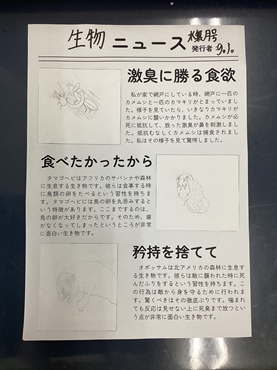 生物ニュース
発行者
激臭に勝る食欲
私が家で網戸にしている時、網戸に一匹の
カメムシと一匹のカマキリがとまっていまし
た。様子を見ていたら、いきなりカマキリがカ
メムシに襲いかかりました。カメムシが必
死に抵抗して、放った激臭が鼻を刺激しまし
た。抵抗むなしくカメムシは捕食されまし
た。私はその様子を見て驚愕しました。
食べたかったから
タマゴヘビはアフリカのサバンナや森林
に生息する生き物です。彼らは食事する時
に鳥類の卵をたべるという習性を持ちま
す。タマゴヘビには鳥の卵を丸呑みするとい
う特徴があります。ここまでするのは、
鳥の卵が大好きだからです。そのため、歯
がなくなってしまったというところが非常
に面白い生き物です。
矜持を捨てて
オポッサムは北アメリカの森林に生息す
る生き物です。彼らは敵に襲われた時に死
んだふりをするという習性を持ちます。こ
の行為は敵から身を守るために行われま
す。驚くべきはその徹底ぶりです。噛まれ
ても反応は見せない上に死臭まで放つとい
う点が非常に面白い生き物です。